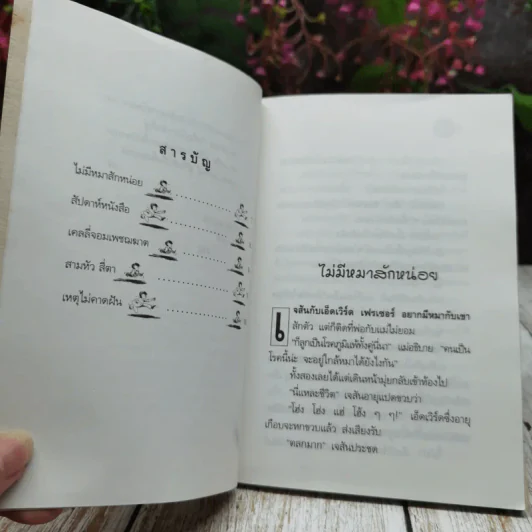 สารบัญ
ไม่มีหมาสักหน่อย
สัปดาห์หนังสือ
เคลลี่จอมเพชฌฆาต
สามหัว สี่ตา
เหตุไม่คาดฝัน
ไม่มีหมาสักหน่อย
เจสันกับเอ็ดเวิร์ด เฟรเซอร์ อยากมีหมากับเขา
สักตัว แต่ก็ติดที่พ่อกับแม่ไม่ยอม
"ก็ลูกเป็นโรคภูมิแพ้ทั้งคู่นี่นา" แม่อธิบาย "คนเป็น
โรคนี้น่ะ จะอยู่ใกล้หมาได้ยังไงกัน"
ทั้งสองเลยได้แต่เดินหน้ามุ่ยกลับเข้าห้องไป
"นี่แหละชีวิต" เจสันอายุแปดขวบว่า
"โฮ่ง โฮ่ง แฮ่ โฮ้ง ๆ ๆ!" เอ็ดเวิร์ดซึ่งอายุ
เกือบจะหกขวบแล้ว ส่งเสียงรับ
"ตลกมาก" เจสันประชด